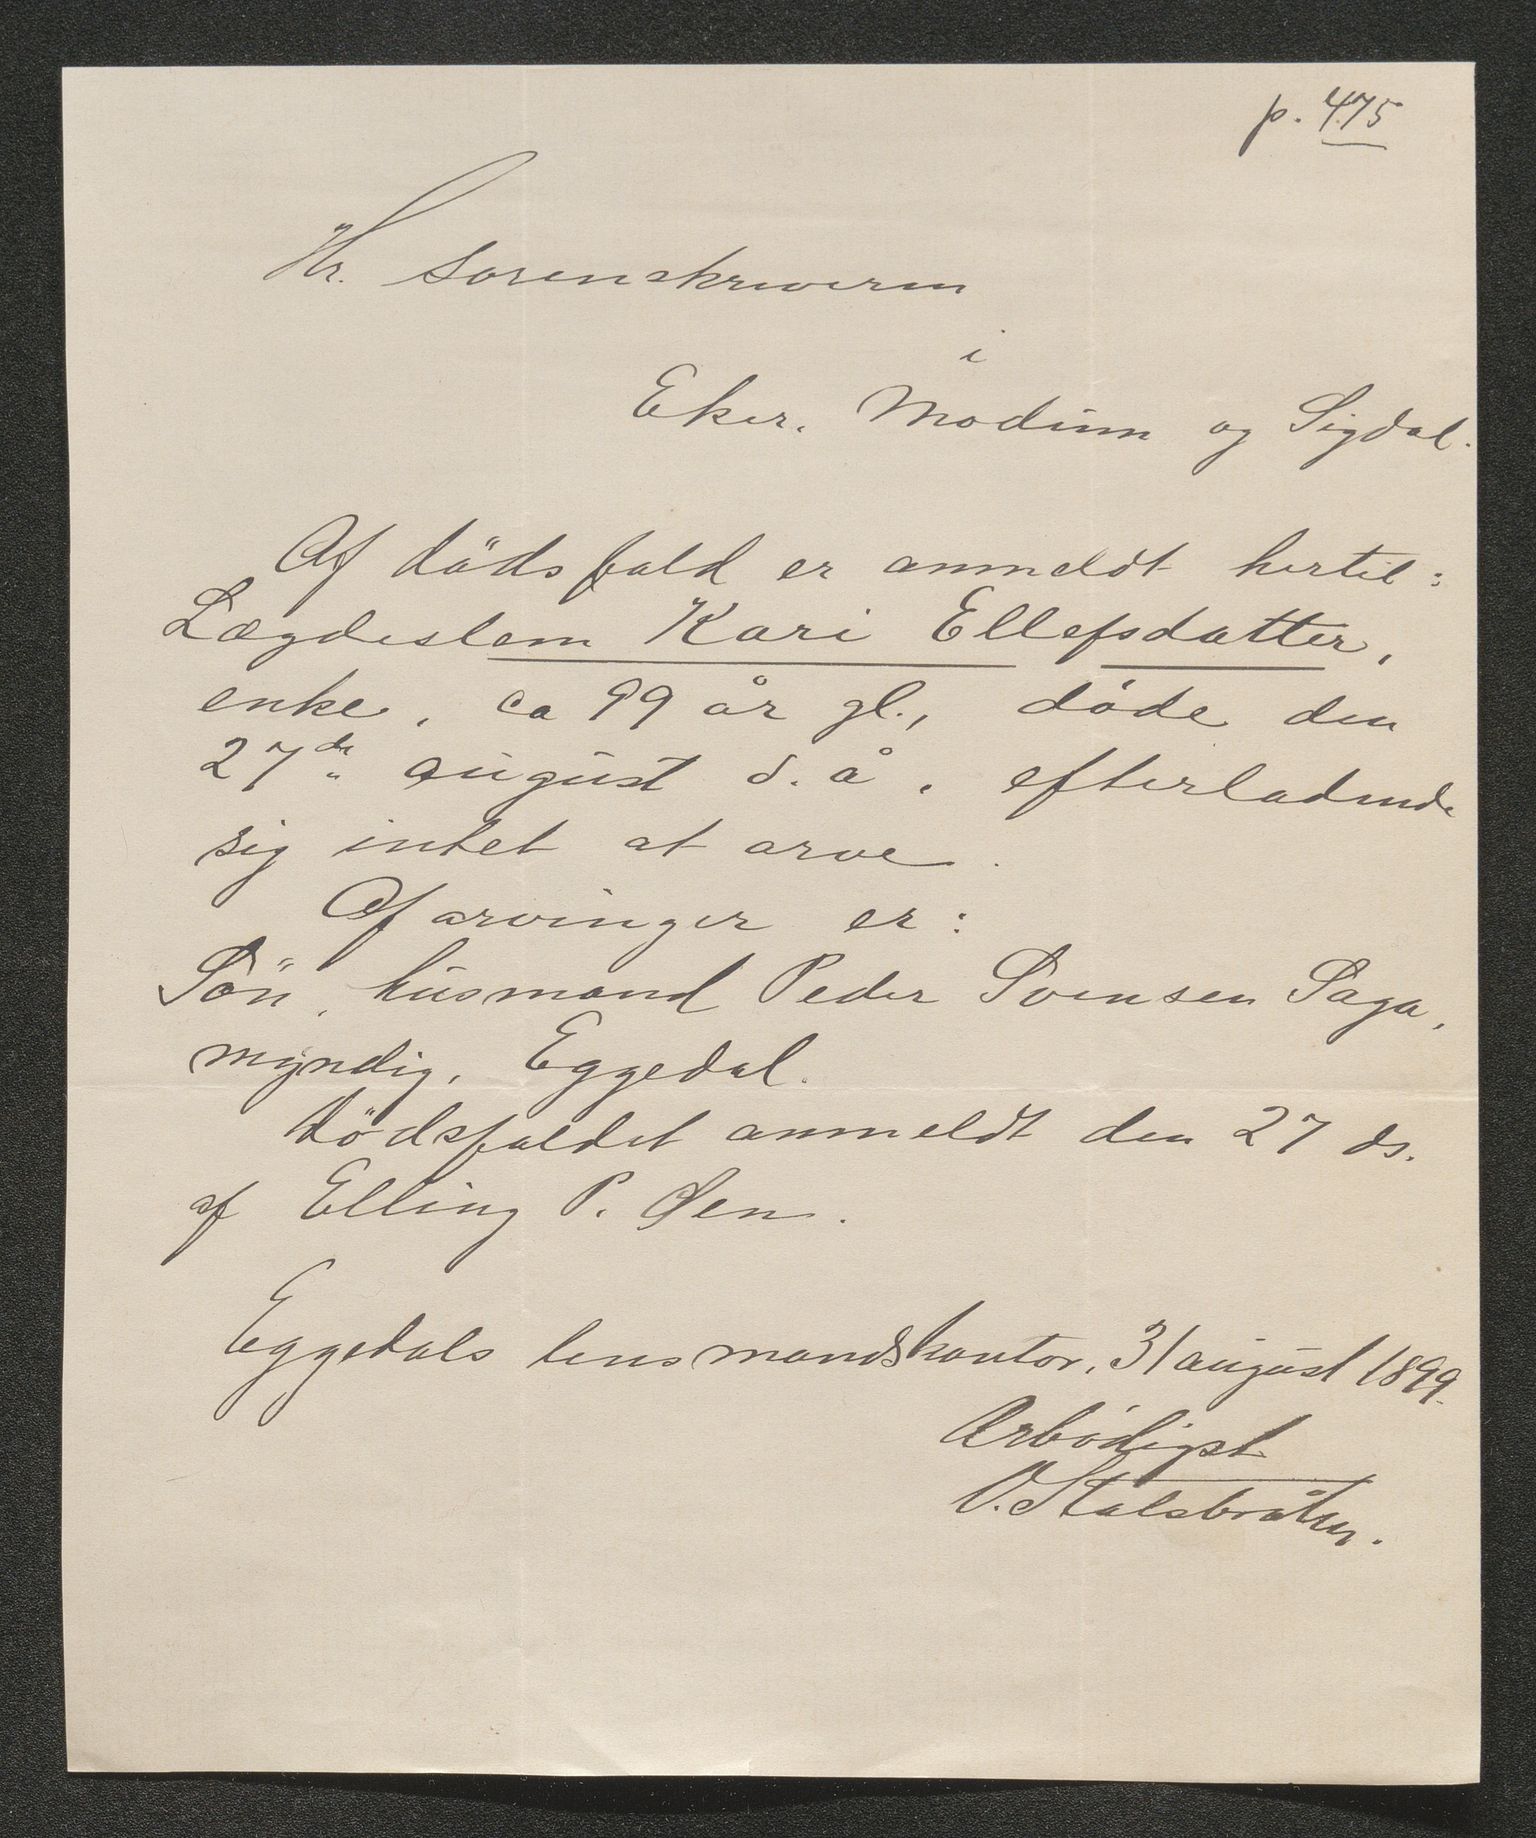 p. 475
Hr. Sorenskriveren
i
Eker, Modum og Sigdal.
Af dödsfald er anmeldt hertil:
Lægdeslem Kari Ellefsdatter,
enke, ca 99 år gl., döde den
27de august d. å., efterladende
sig intet at arve.
Af arvinger er:
Sön, husmand Peder Svensen Saga,
myndig, Eggedal.
Dödsfaldet anmeldt den 27 ds.
af Elling P. Øen.
Eggedals lensmandskontor, 31 august 1899.
Ærbödigst
O. Stalsbråten.